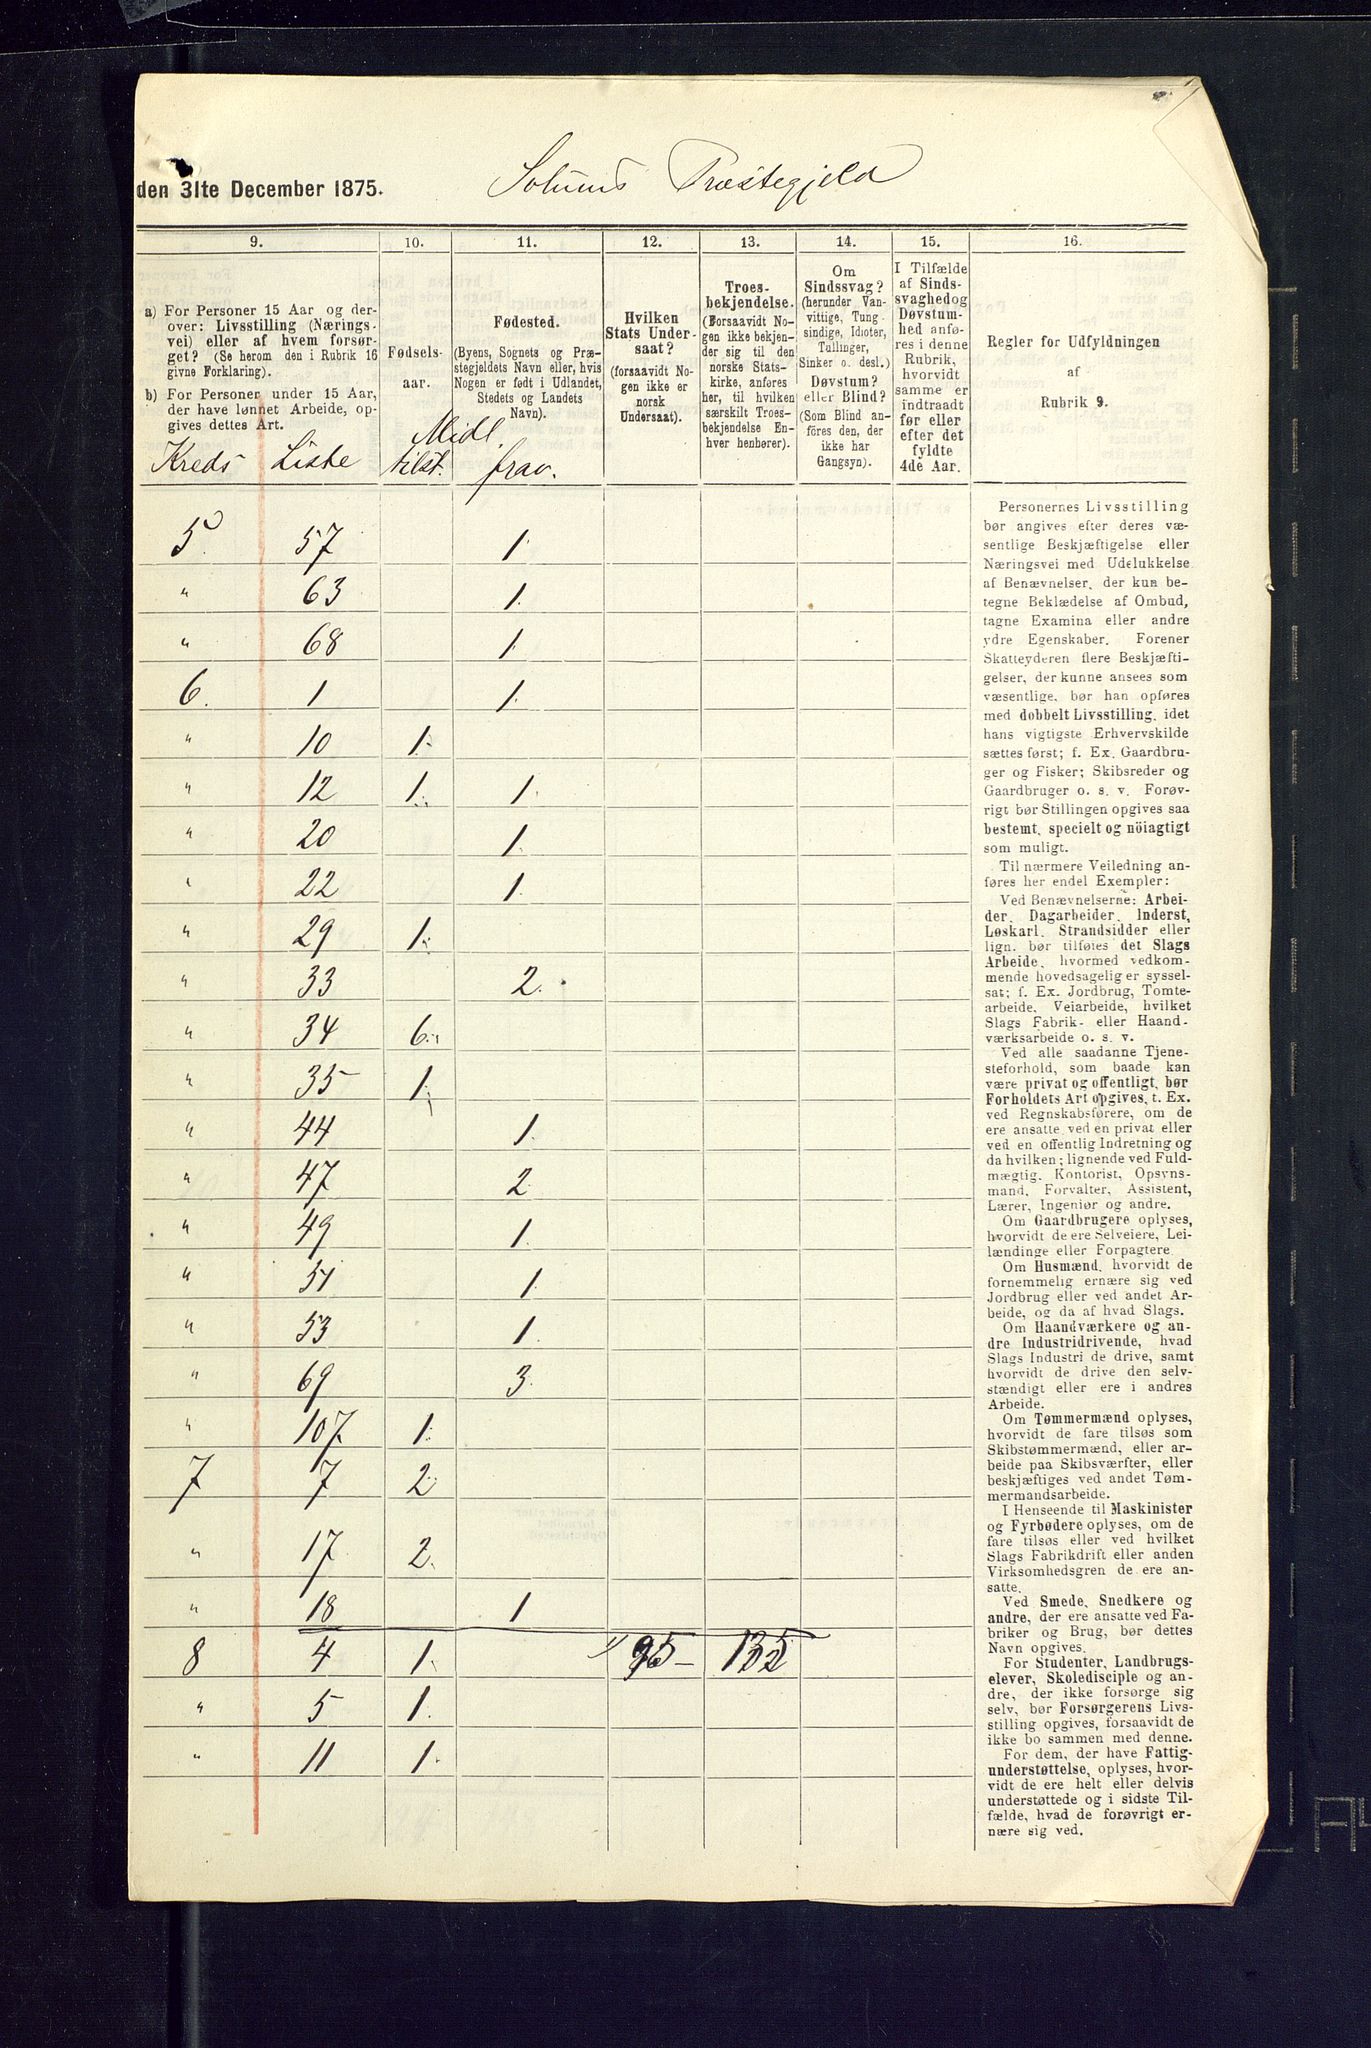 den 31te December 1875.
Solums Præstegjeld
9.
10.
11.
12.
13.
14.
15.
16.
a) For Personer 15 Aar og der-
over: Livsstilling (Nærings-
vei) eller af hvem forsør-
get? (Se herom den i Rubrik 16
givne Forklaring).
b) For Personer under 15 Aar,
der have lønnet Arbeide, op-
gives dettes Art.
Fødsels-
aar.
Fødested.
(Byens, Sognets og Præ-
stegjeldets Navn eller, hvis
Nogen er født i Udlandet,
Stedets og Landets
Navn).
Hvilken
Stats Under-
saat?
(forsaavidt No-
gen ikke er
norsk
Undersaat).
Troes-
bekjendelse.
(Forsaavidt No-
gen ikke bekjen-
der sig til den
norske Stats-
kirke, anføres
her, til hvilken
særskilt Troes-
bekjendelse En-
hver henhører).
Om
Sindssvag?
(herunder Van-
vittige, Tung-
sindige, Idioter,
Tullinger,
Sinker o. desl.)
Døvstum?
eller Blind?
(Som Blind an-
føres den, der
ikke har
Gangsyn).
I Tilfælde
af Sinds-
svaghed og
Døvstum-
hed anfø-
res i denne
Rubrik,
hvorvidt
samme er
indtraadt
før eller
efter det
fyldte
4de Aar.
Regler for Udfyldningen
af
Rubrik 9.
Kreds Liste Midl. tilst. frav.
5. 57 1.
" 63 1.
" 68 1.
6. 1 1.
" 10 1.
" 12 1. 1.
" 20 1.
" 22 1.
" 29 1.
" 33 2.
" 34 6.
" 35 1.
" 44 1.
" 47 2.
" 49 1.
" 51 1.
" 53 1.
" 69 3.
" 107 1.
7 7 2.
" 17 2.
" 18 1
8 4 1. 95 135
" 5 1.
" 11 1.
Personernes Livsstilling
bør angives efter deres væ-
sentlige Beskjæftigelse eller
Næringsvei med Udelukkelse
af Benævnelser, der kun be-
tegne Beklædelse af Ombud,
tagne Examina eller andre
ydre Egenskaber. Forener
Skatteyderen flere Beskjæfti-
gelser, der kunne ansees som
væsentlige, bør han opføres
med dobbelt Livsstilling, idet
hans vigtigste Erhvervskilde
sættes først; f. Ex. Gaardbru-
ger og Fisker; Skibsreder og
Gaardbruger o. s. v. Forøv-
rigt bør Stillingen opgives saa
bestemt, specielt og nöiagtigt
som muligt.
Til nærmere Veiledning an-
føres her endel Exempler:
Ved Benævnelserne: Arbei-
der, Dagarbeider, Inderst,
Løskarl, Strandsidder eller
lign. bør tilføies det Slags
Arbeide, hvormed vedkom-
mende hovedsagelig er syssel-
sat; f. Ex. Jordbrug, Tomte-
arbeide, Veiarbeide, hvilket
Slags Fabrik- eller Haand-
værksarbeide o. s. v.
Ved alle saadanne Tjene-
steforhold, som baade kan
være privat og offentligt, bør
Forholdets Art opgives, t. Ex.
ved Regnskabsførere, om de
ere ansatte ved en privat eller
ved en offentlig Indretning og
da hvilken; lignende ved Fuld-
mægtig, Kontorist, Opsyns-
mand, Forvalter, Assistent,
Lærer, Ingeniør og andre.
Om Gaardbrugere oplyses,
hvorvidt de ere Selveiere, Lei-
lændinge eller Forpagtere
Om Husmænd, hvorvidt de
fornemmelig ernære sig ved
Jordbrug eller ved andet Ar-
beide, og da af hvad Slags.
Om Haandværkere og an-
dre Industridrivende, hvad
Slags Industri de drive, samt
hvorvidt de drive den selv-
stændigt eller ere i andres
Arbeide.
Om Tømmermænd oplyses,
hvorvidt de fare tilsøs som
Skibstømmermænd, eller ar-
beide paa Skibsværfter, eller
beskjæftiges ved andet Tøm-
mermandsarbeide.
I Henseende til Maskinister
og Fyrbødere oplyses, om de
fare tilsøs eller ved hvilket
Slags Fabrikdrift eller anden
Virksomhedsgren de ere an-
satte.
Ved Smede, Snedkere og
andre, der ere ansatte ved Fa-
briker og Brug, bør dettes
Navn opgives.
For Studenter, Landbrugs-
elever, Skoledisciple og an-
dre, der ikke forsørge sig
selv, bør Forsørgerens Livs-
stilling opgives, forsaavidt de
ikke bo sammen med denne.
For dem, der have Fattig-
understøttelse, oplyses, hvor-
vidt de ere helt eller delvis
understøttede og i sidste Til-
fælde, hvad de forøvrigt er-
nære sig ved.